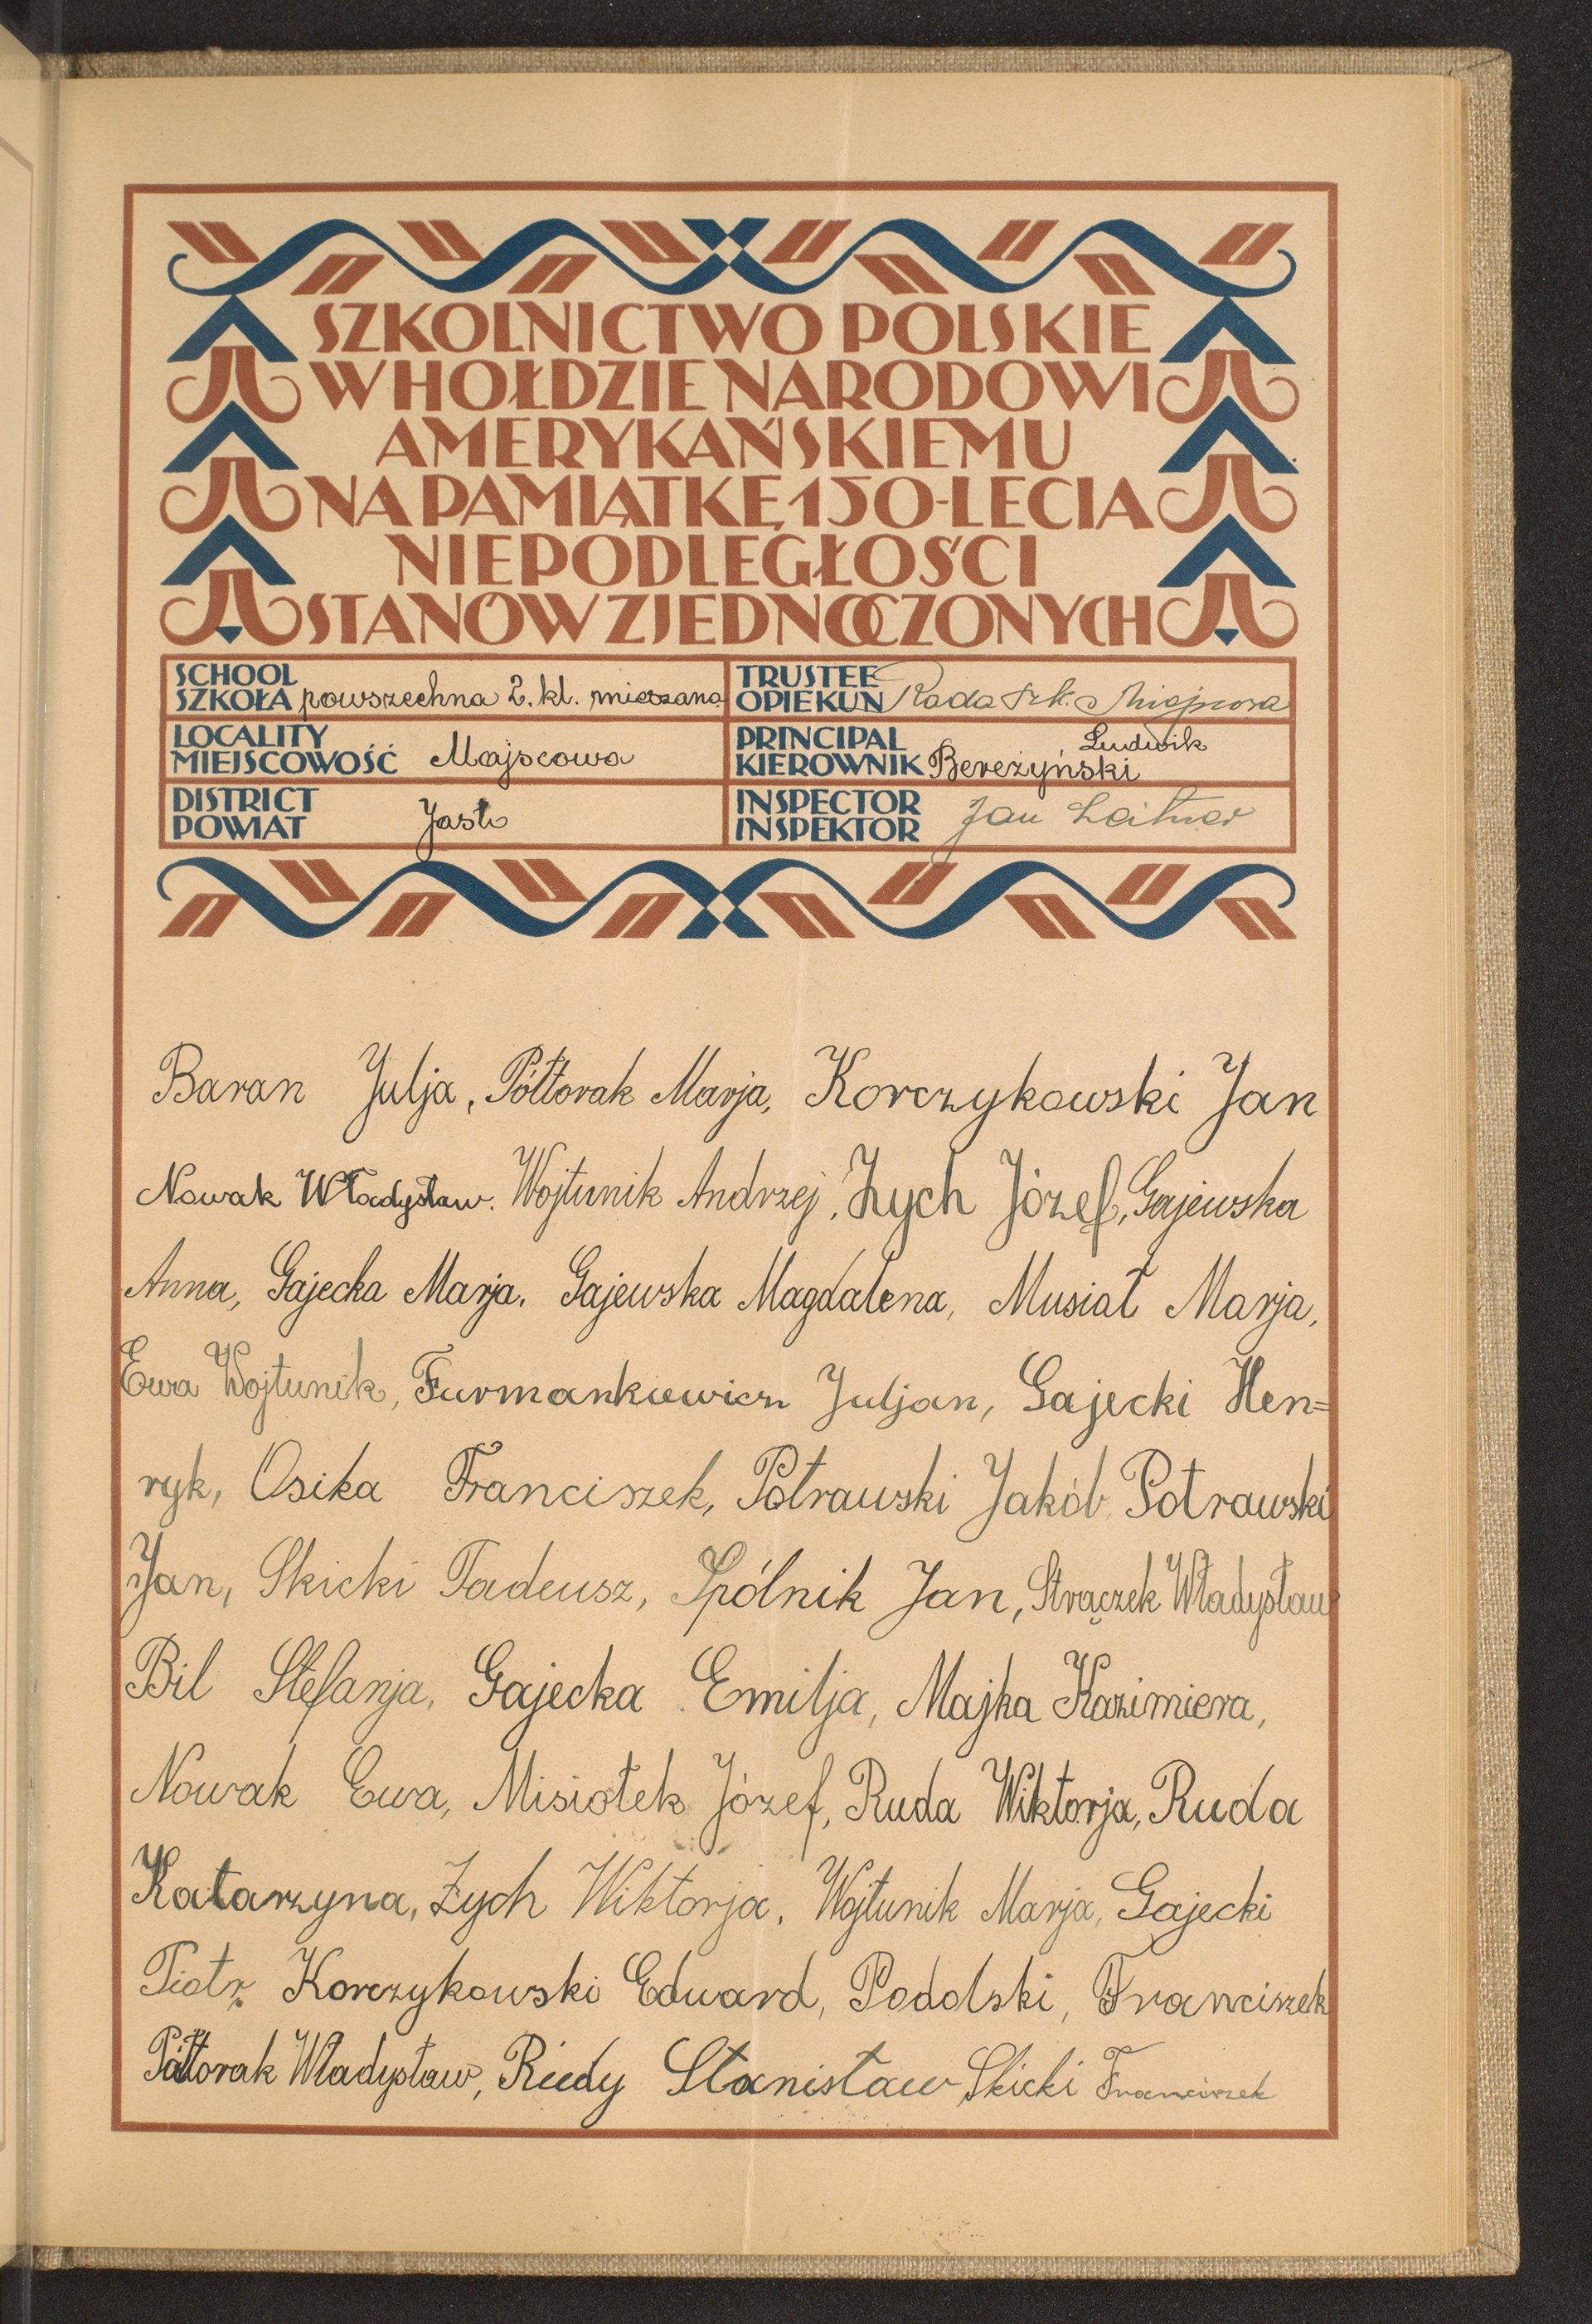 SZKOLNICTWO POLSKIE
W HOŁDZIE NARODOWI
AMERYKAŃSKIEMU
NA PAMIĄTKĘ 150-LECIA
NIEPODLEGŁOŚCI
STANÓW ZJEDNOCZONYCH
SCHOOL
SZKOŁA powszechna 2. kl. mieszana
TRUSTEE
OPIEKUN Rada Szk. Miejscowa
LOCALITY
MIEJSCOWOŚĆ Majscowa
PRINCIPAL Ludwik
KIEROWNIK Bereżyński
DISTRICT
POWIAT Jasło
INSPECTOR
INSPEKTOR Jan Leitner
Baran Julja, Półtorak Marja, Korczykowski Jan
Nowak Władysław. Wojtunik Andrzej, Zych Józef, Gajewska
Anna, Gajecka Marja. Gajewska Magdalena, Musiał Marja,
Ewa Wojtunik, Furmankiewicz Juljan, Gajecki Hen=
ryk, Osika Franciszek, Potrawski Jakób, Potrawski
Jan, Skicki Tadeusz, Spólnik Jan, Strączek Władysław
Bil Stefanja, Gajecka Emilja, Majka Kazimiera,
Nowak Ewa, Misiołek Józef, Ruda Wiktorja, Ruda
Katarzyna, Zych Wiktorja, Wojtunik Marja, Gajecki
Piotr, Korczykowski Edward, Podolski, Franciszek
Półtorak Władysław, Rudy Stanisław, Skicki Franciszek